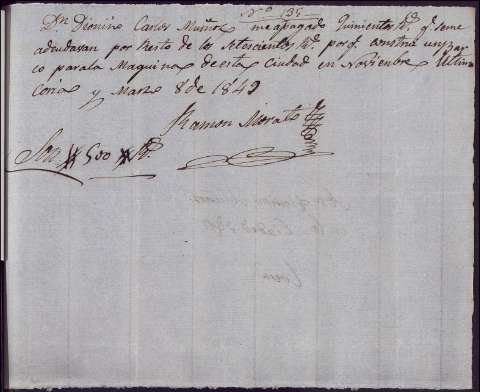 Nº 135
Dn Dionisio Carlos Muñoz me a pagado Quinientos Rs. qe. seme
adeudavan por Resto de los setescientos Rs. por qe. construi un Bar
co parala Maquina de esta Ciudad en Noviembre Ultimo
Coria y Marzo 8 de 1849
Ramon Morato
Son # 500 # Rs.